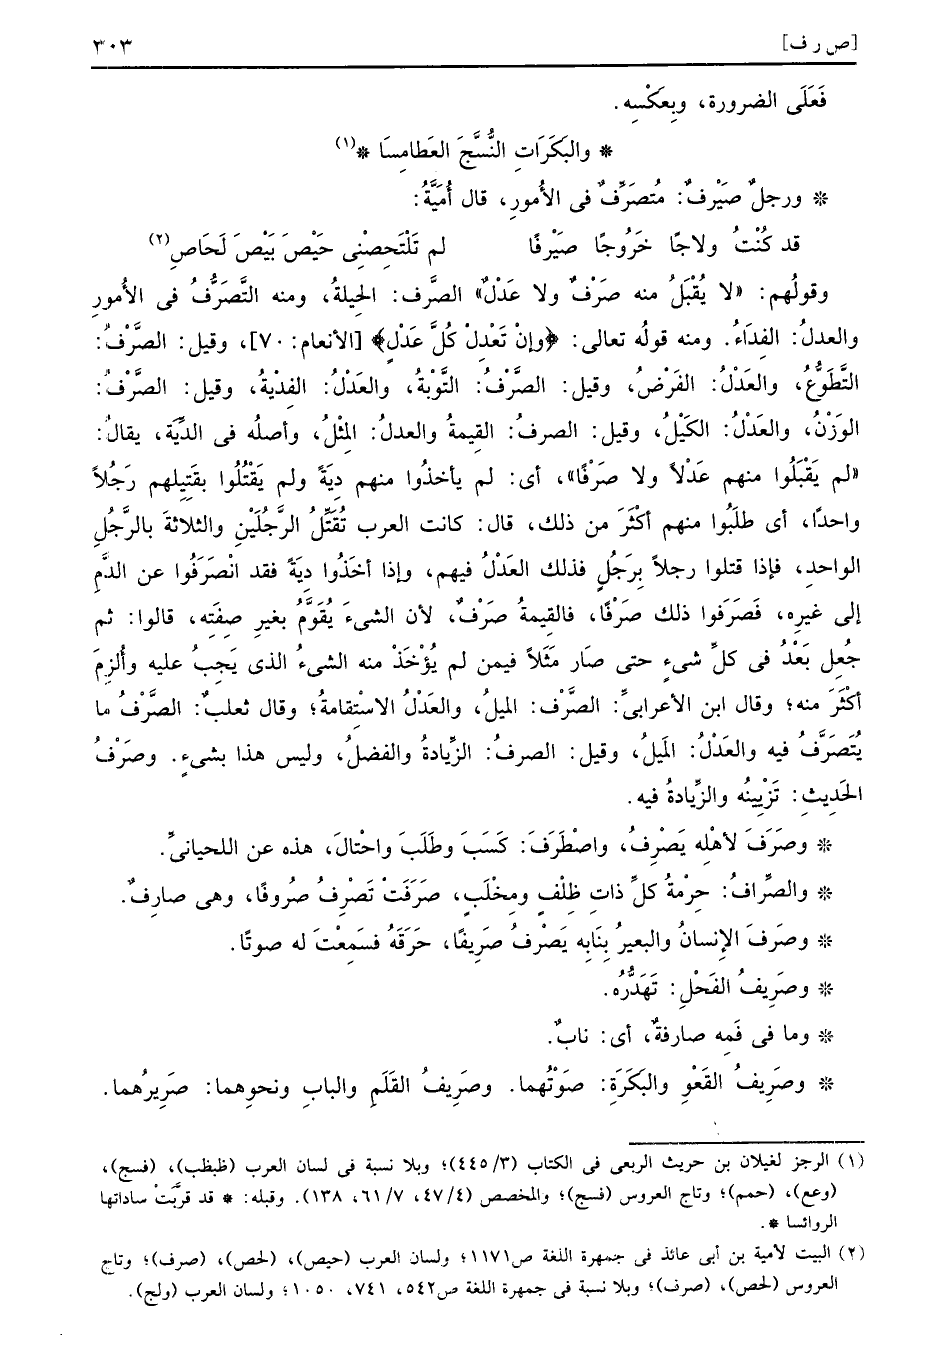 [ص ر ف] ٣٠٣
فَعَلَى الضرورة، وبِعكْسِه.
* والبَكَرَاتِ النُّسَّجَ العَطامِسَا *(١)
* ورجلٌ صيْرفٌ: مُتصَرِّفٌ فى الأُمورِ، قال أُمَيَّةُ:
قد كُنْتُ ولاجًا خَرُوجًا صَيْرفًا لم تَلْتَحِصْنِى حَيْصَ بَيْصَ لَحَاصِ(٢)
وقولُهم: «لا يُقْبَلُ منه صَرْفٌ ولا عَدْلٌ» الصَّرف: الحِيلةُ، ومنه التَّصَرُّفُ فى الأُمورِ
والعدلُ: الفِدَاءُ. ومنه قولُه تعالى: ﴿وإنْ تَعْدلْ كُلَّ عَدْلٍ﴾ [الأنعام: ٧٠]، وقيل: الصَّرْفُ:
التَّطَوُّعُ، والعَدْلُ: الفَرْضُ، وقيل: الصَّرْفُ: التَّوْبةُ، والعَدْلُ: الفِدْيةُ، وقيل: الصَّرْفُ:
الوَزْنُ، والعَدْلُ: الكَيْلُ، وقيل: الصرفُ: القِيمةُ والعدلُ: المِثْلُ، وأصلُه فى الدِّيَة، يقالُ:
«لم يَقْبَلُوا منهم عَدْلاً ولا صَرْفًا»، أى: لم يأخذُوا منهم دِيَةً ولم يَقْتُلُوا بقَتِيلهم رَجُلاً
واحدًا، أى طلَبُوا منهم أكْثَرَ من ذلك، قال: كانت العرب تُقَتِّلُ الرَّجُلَيْنِ والثلاثةَ بالرَّجُلِ
الواحدِ، فإذا قتلوا رجلاً بِرَجُلٍ فذلك العَدْلُ فيهم، وإذا أخَذُوا دِيَةً فقد انْصَرَفُوا عن الدَّمِ
إلى غيرِه، فَصَرَفوا ذلك صَرْفًا، فالقِيمةُ صَرْفٌ، لأن الشىءَ يُقَوَّمُ بغيرِ صِفتِه، قالوا: ثم
جُعِل بَعْدُ فى كلِّ شىءٍ حتى صَار مَثَلاً فيمن لم يُؤْخَذْ منه الشىءُ الذى يَجِبُ عليه وأُلزِمَ
أكْثَرَ منه؛ وقال ابن الأعرابىِّ: الصَّرْف: الميلُ، والعَدْلُ الاسْتِقامةُ؛ وقال ثعلبٌ: الصَّرْفُ ما
يُتَصَرَّفُ فيه والعَدْلُ: المَيلُ، وقيل: الصرفُ: الزِّيادةُ والفضلُ، وليس هذا بشىءٍ. وصَرْفُ
الحَدِيثِ: تَزْيِينُه والزِّيادةُ فيه.
* وصَرَفَ لأهْلِه يَصْرِفُ، واصْطَرَفَ: كَسَبَ وطَلَبَ واحْتالَ، هذه عن اللحيانىِّ.
* والصِّرافُ: حِرْمةُ كلِّ ذاتِ ظِلْفٍ ومِخْلَبٍ، صَرَفَتْ تَصْرِفُ صُروفًا، وهى صارِفٌ.
* وصَرفَ الإنسانُ والبعيرُ بِنَابِه يَصْرفُ صَرِيفًا، حَرَقَهُ فسَمِعْتَ له صوتًا.
* وصَرِيفُ الفَحْلِ: تَهَدُّرُه.
* وما فى فَمِه صارِفةٌ، أى: نابٌ.
* وصَرِيفُ القَعْوِ والبَكَرَةِ: صَوْتُهما. وصَرِيفُ القَلَمِ والبابِ ونحوِهما: صَرِيرُهما.
(١) الرجز لغيلان بن حريث الربعى فى الكتاب (٣/ ٤٤٥)؛ وبلا نسبة فى لسان العرب (ظبظب)، (فسج)،
(وعع)، (حمم)؛ وتاج العروس (فسج)؛ والمخصص (٤/ ٤٧، ٧/ ٦١، ١٣٨). وقبله: * قد قرَّبَتْ ساداتها
الروائسا *.
(٢) البيت لأمية بن أبى عائذ فى جمهرة اللغة ص١١٧١؛ ولسان العرب (حيص)، (لحص)، (صرف)؛ وتاج
العروس (لحص)، (صرف)؛ وبلا نسبة فى جمهرة اللغة ص٥٤٢، ٧٤١، ١٠٥٠؛ ولسان العرب (ولج).